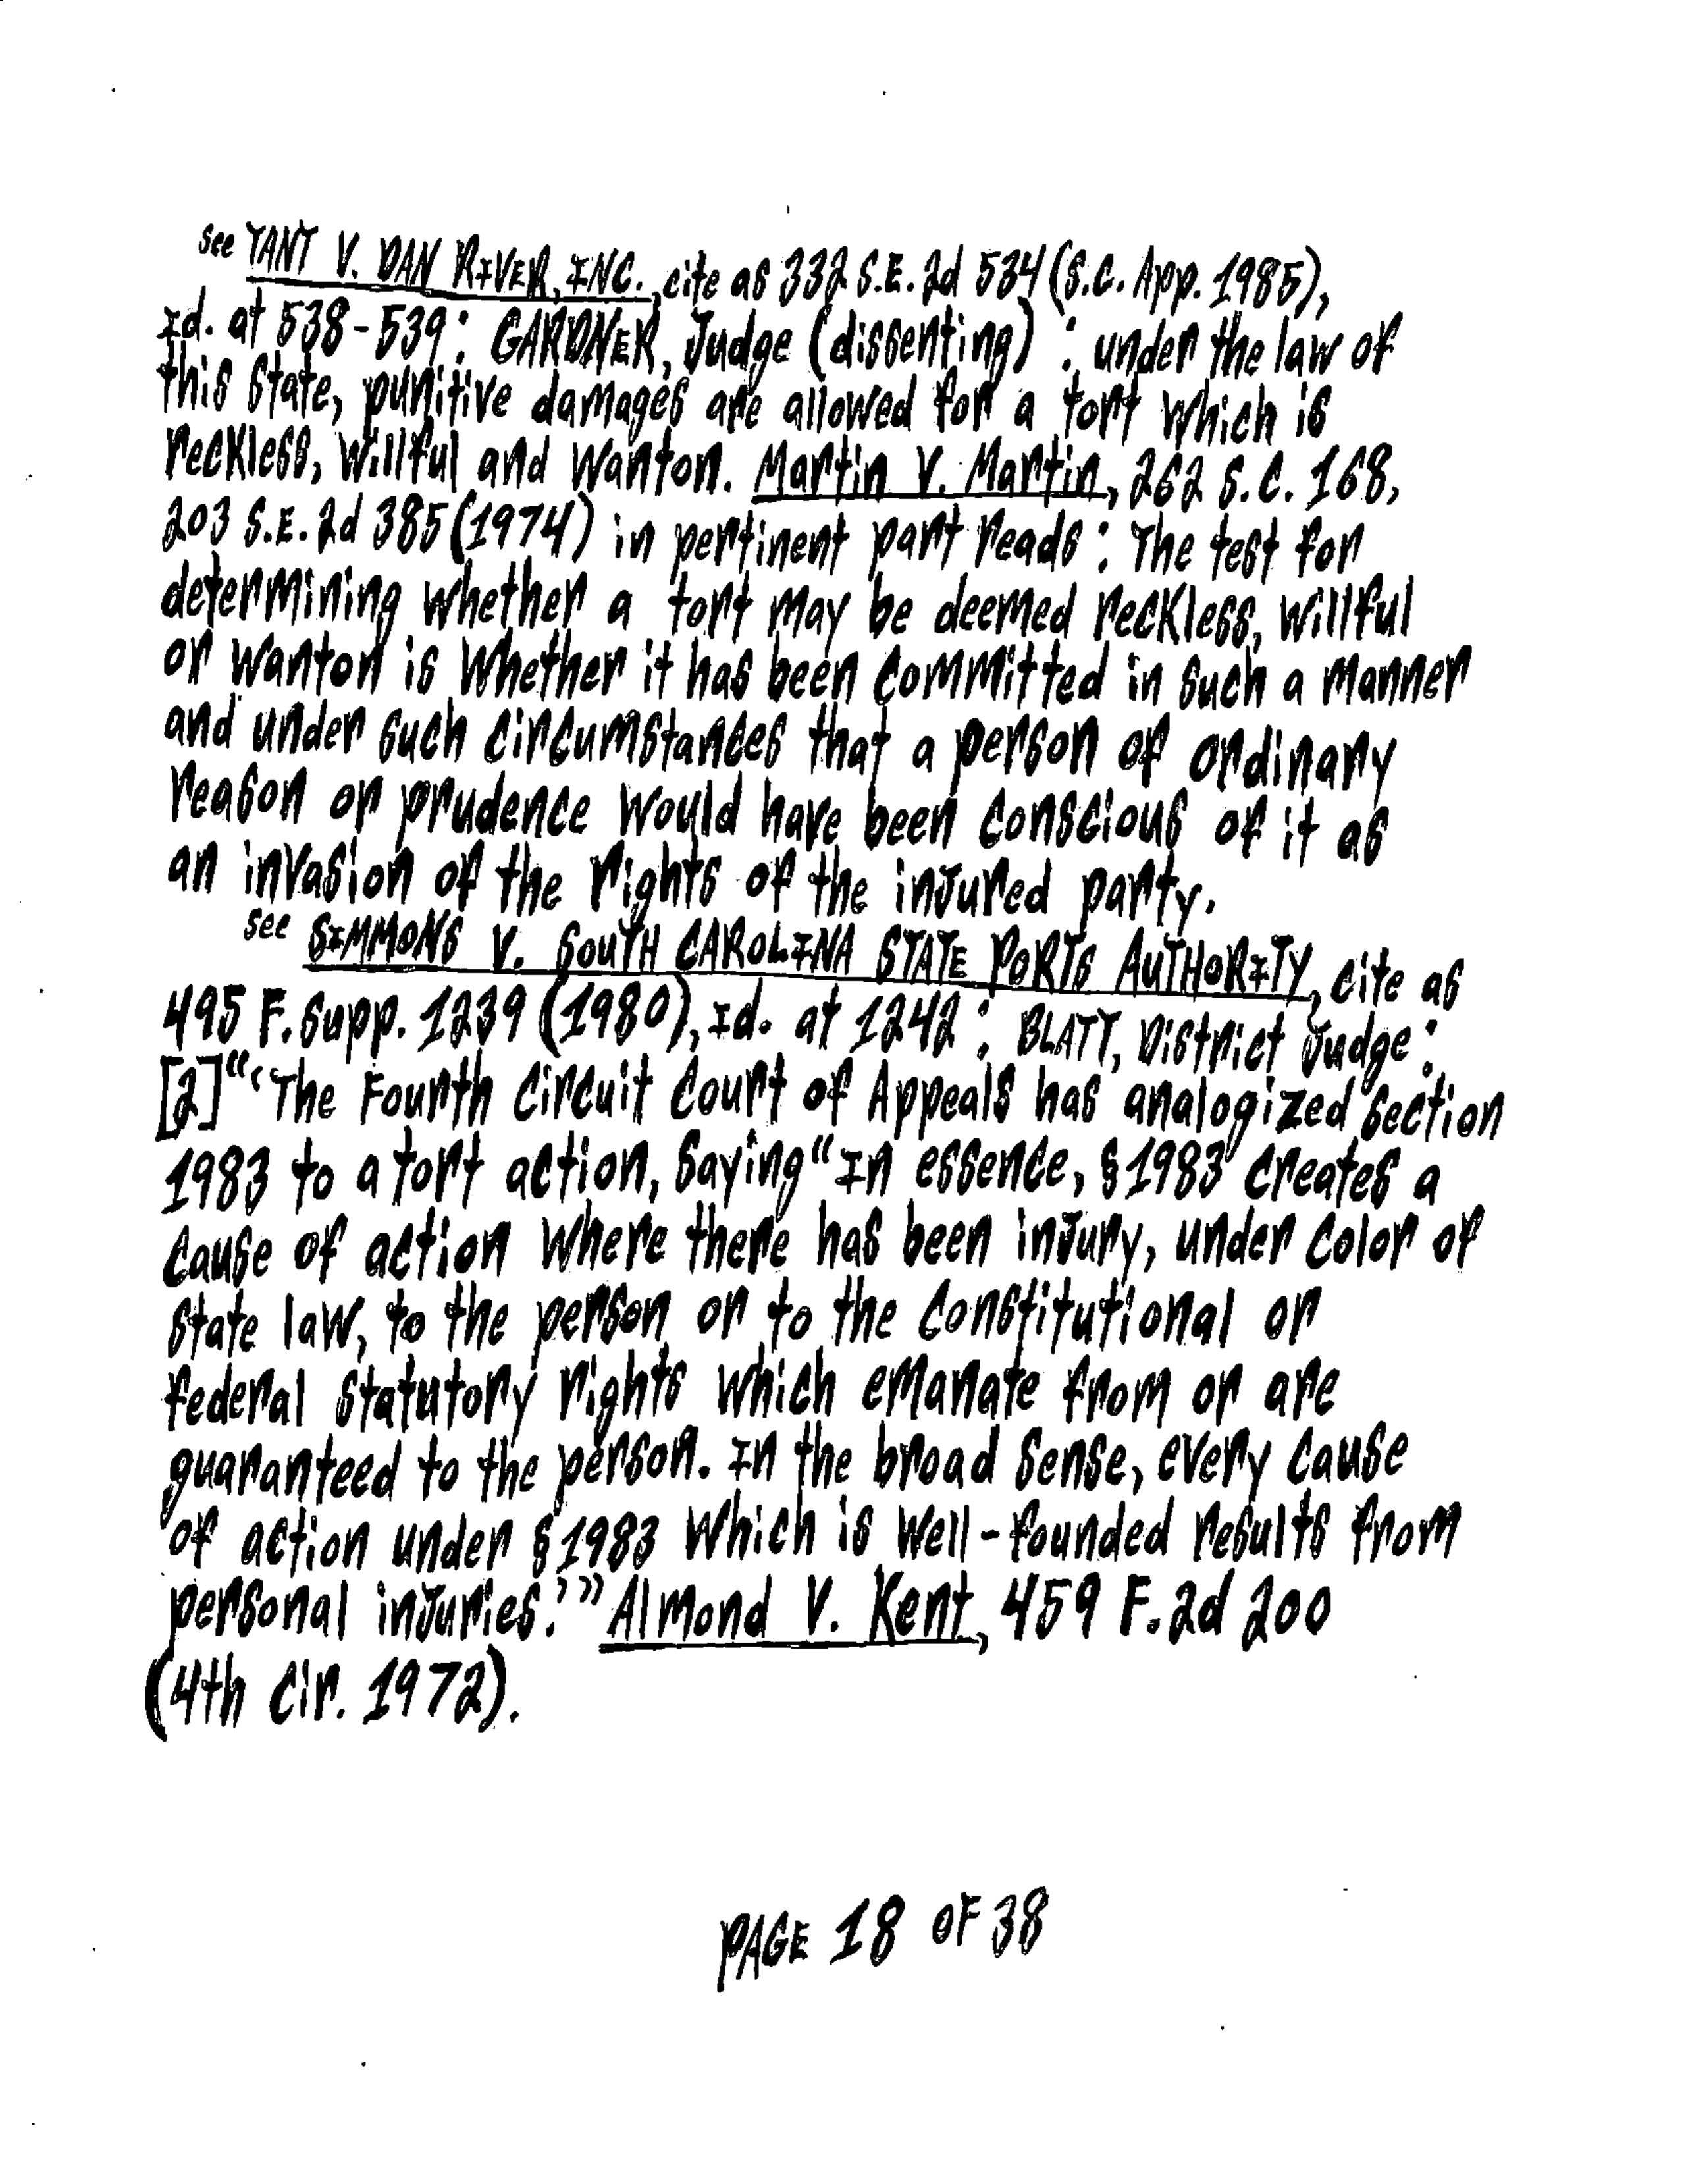 see TANT V. DAN RIVER, INC., cite as 332 S.E. 2d 534 (S.C. App. 1985),
Id. at 538-539: GARDNER, Judge (dissenting): under the law of
this State, punitive damages are allowed for a tort which is
reckless, willful and wanton. Martin V. Martin, 262 S.C. 168,
203 S.E. 2d 385 (1974) in pertinent part reads: The test for
determining whether a tort may be deemed reckless, willful
or wanton is whether it has been committed in such a manner
and under such circumstances that a person of ordinary
reason or prudence would have been conscious of it as
an invasion of the rights of the injured party.
see SIMMONS V. SOUTH CAROLINA STATE PORTS AUTHORITY, cite as
495 F. Supp. 1239 (1980), Id. at 1242: BLATT, District Judge:
[2] "'The Fourth Circuit Court of Appeals has analogized Section
1983 to a tort action, saying "In essence, §1983 creates a
cause of action where there has been injury, under color of
state law, to the person or to the constitutional or
federal statutory rights which emanate from or are
guaranteed to the person. In the broad sense, every cause
of action under §1983 which is well-founded results from
personal injuries.'" Almond V. Kent, 459 F.2d 200
(4th Cir. 1972).
PAGE 18 OF 38